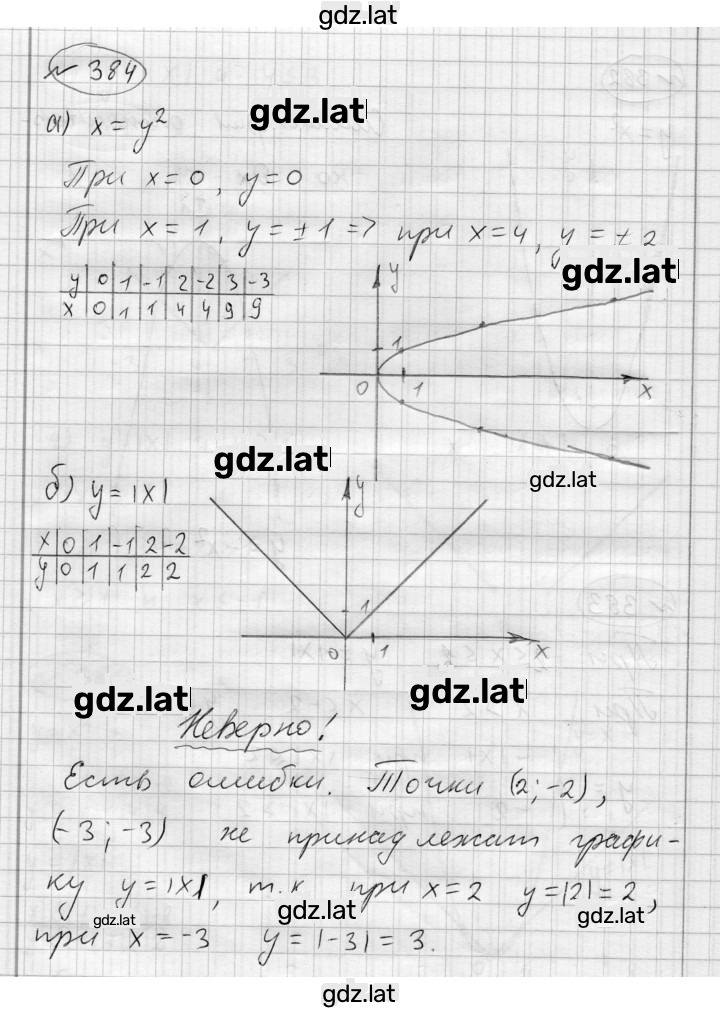 gdz.lat
№ 384
gdz.lat
а) x = y²
При x = 0, y = 0
При x = 1, y = ±1 => при x = 4, y = ± 2
gdz.lat
y 0 1 -1 2 -2 3 -3
x 0 1 1 4 4 9 9
y
1
0 1 x
gdz.lat
gdz.lat
б) y = |x|
x 0 1 -1 2 -2
y 0 1 1 2 2
y
1
0 1 x
gdz.lat
gdz.lat
Неверно!
Есть ошибки. Точки (2; -2),
(-3; -3) же принадлежат графи-
ку y = |x|, т.к при x = 2 y = |2| = 2,
gdz.lat
gdz.lat
gdz.lat
при x = -3 y = |-3| = 3.
gdz.lat